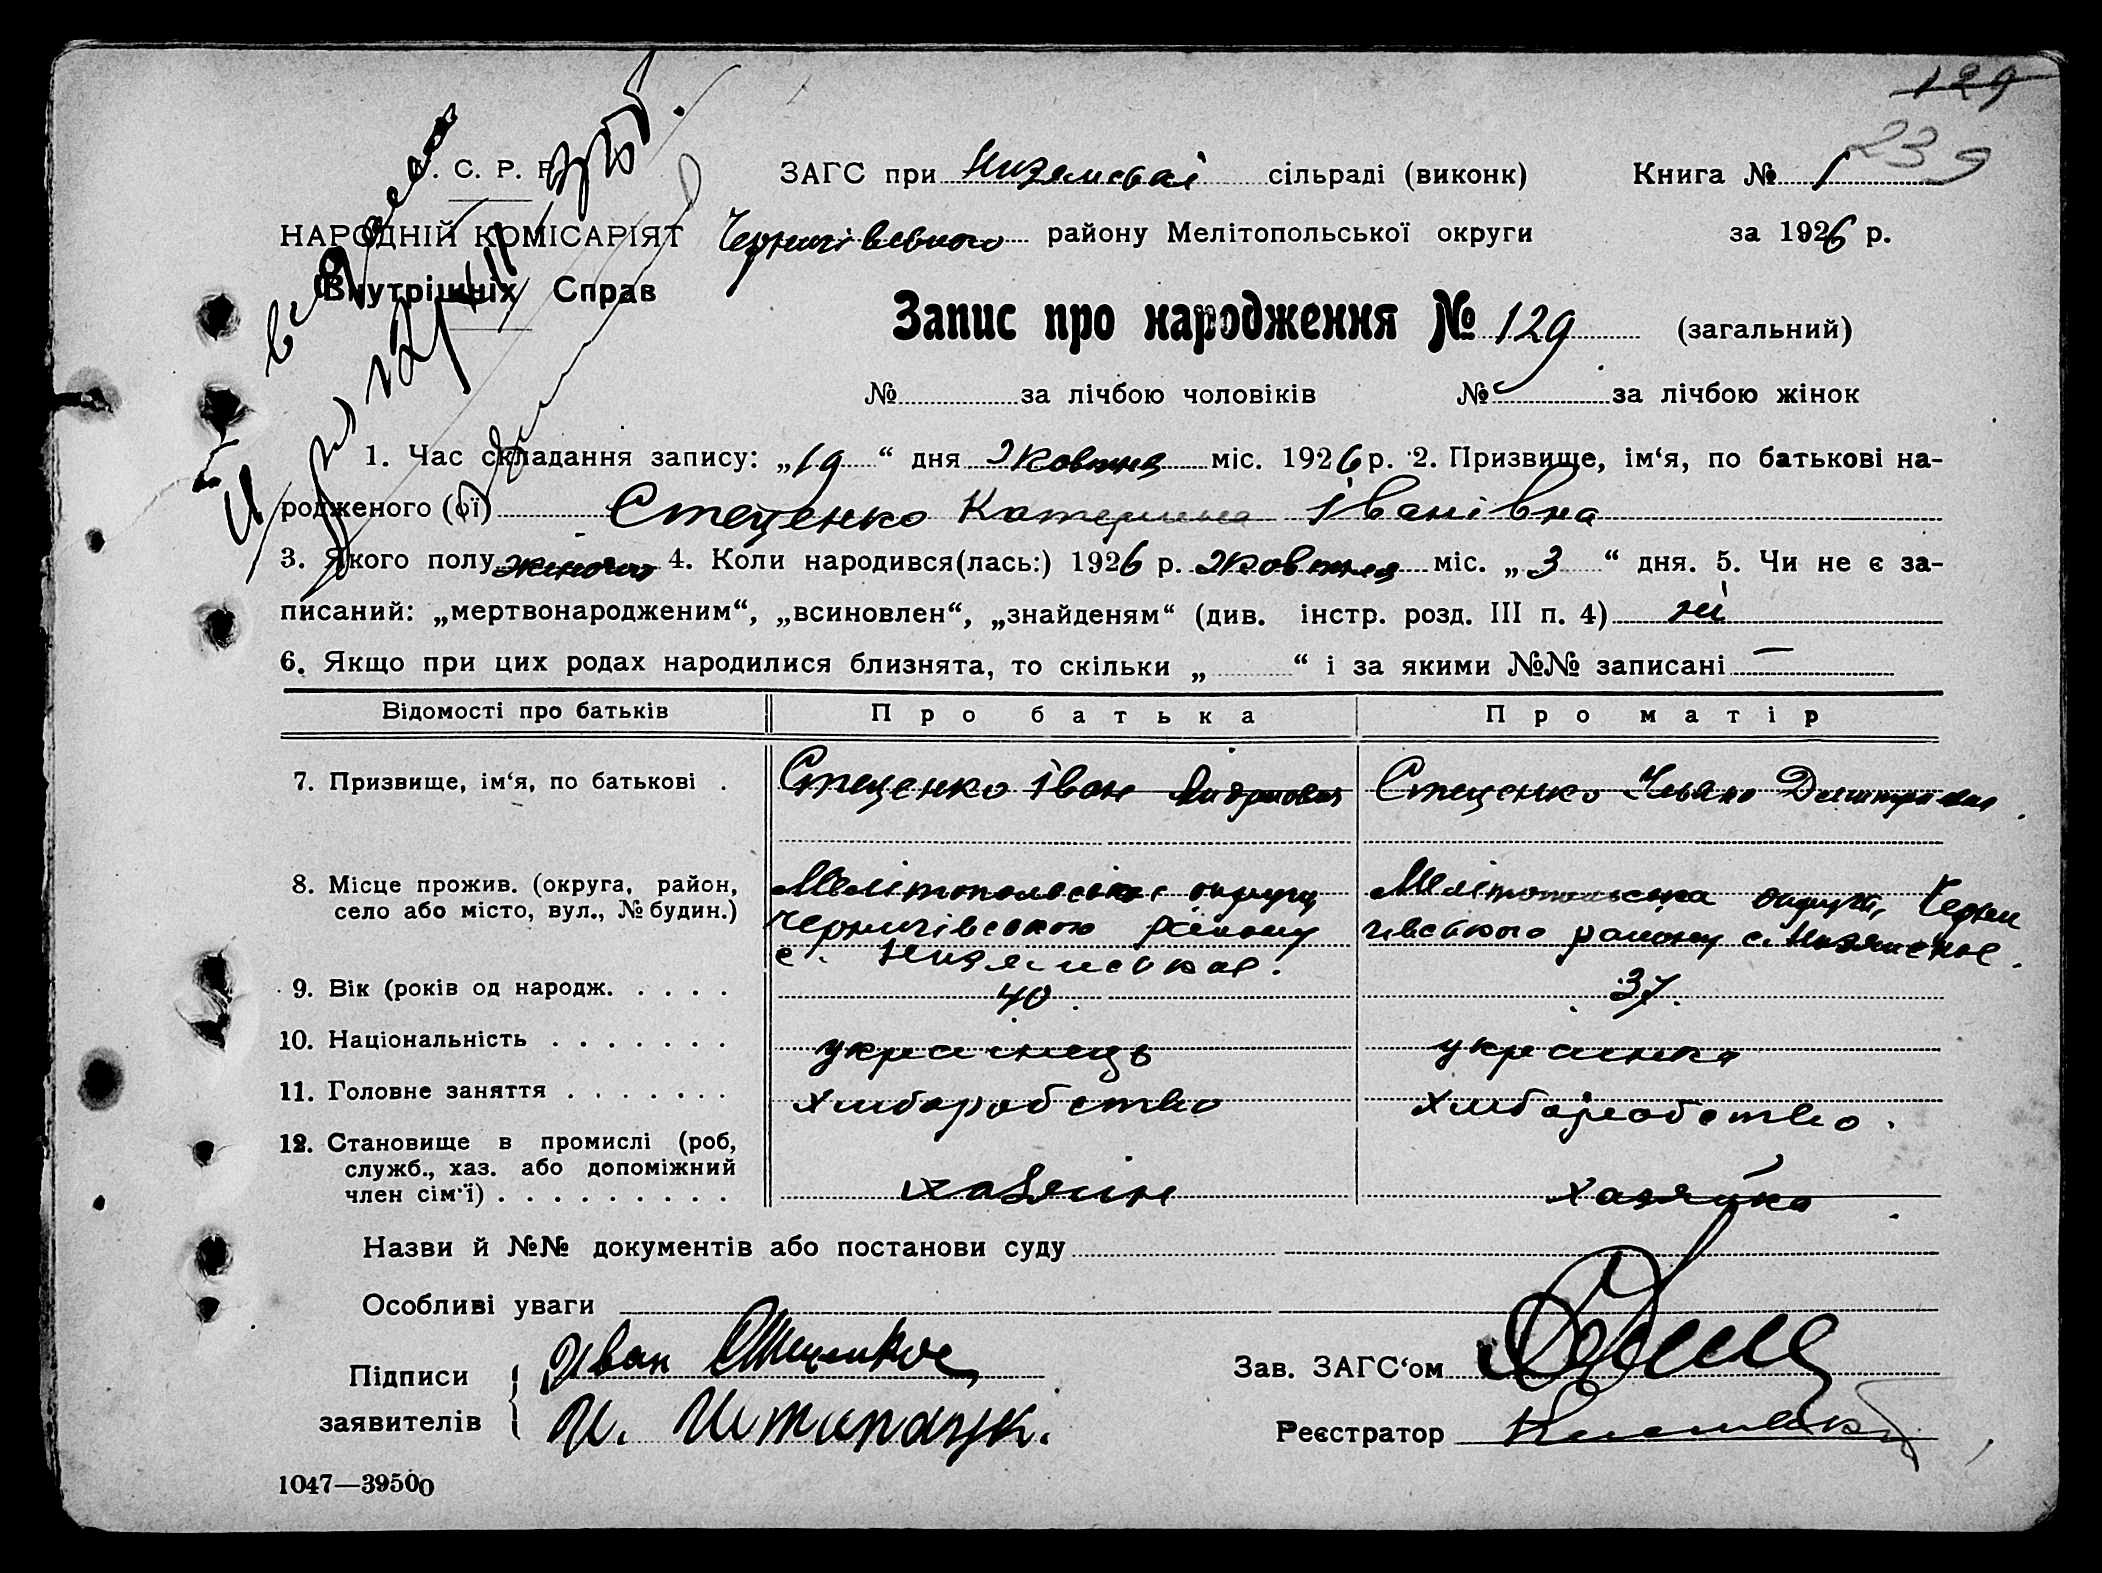 129
239
С. Р. Р.
ЗАГС при Низянській сільраді (виконк) Книга № 1
НАРОДНІЙ КОМІСАРІЯТ Чернигівського району Мелітопольської округи за 1926 р.
Внутрішніх Справ
Запис про народження № 129 (загальний)
№ за лічбою чоловіків № за лічбою жінок
1. Час складання запису: „19“ дня Жовтня міс. 1926 р. 2. Призвище, ім‘я, по батькові на-
родженого (ої) Стеценко Катерина Іванівна
3. Якого полу жіночого 4. Коли народився(лась:) 1926 р. Жовтня міс. „3“ дня. 5. Чи не є за-
писаний: „мертвонародженим“, „всиновлен“, „знайденям“ (див. інстр. розд. III п. 4) ні
6. Якщо при цих родах народилися близнята, то скільки „ “ і за якими №№ записані —
Відомості про батьків Про батька Про матір
7. Призвище, ім‘я, по батькові . Стеценко Іван Стеценко Уляна
8. Місце прожив. (округа, район, Мелітопольської округи Мелітопольська округи, Черни
село або місто, вул., № будин.) Чернигівського району гівського району с.
с.
9. Вік (років од народж. . . . . 40. 37.
10. Національність . . . . . . . українець українка
11. Головне заняття . . . . . . . хліборобство хліборобство.
12. Становище в промислі (роб,
служб., хаз. або допоміжний
член сім‘ї) . . . . . . . . . хазяін хазяйка
Назви й №№ документів або постанови суду
Особливі уваги
Підписи Иван Стеценко Зав. ЗАГС‘ом
заявителів И. Реєстратор
1047—39500